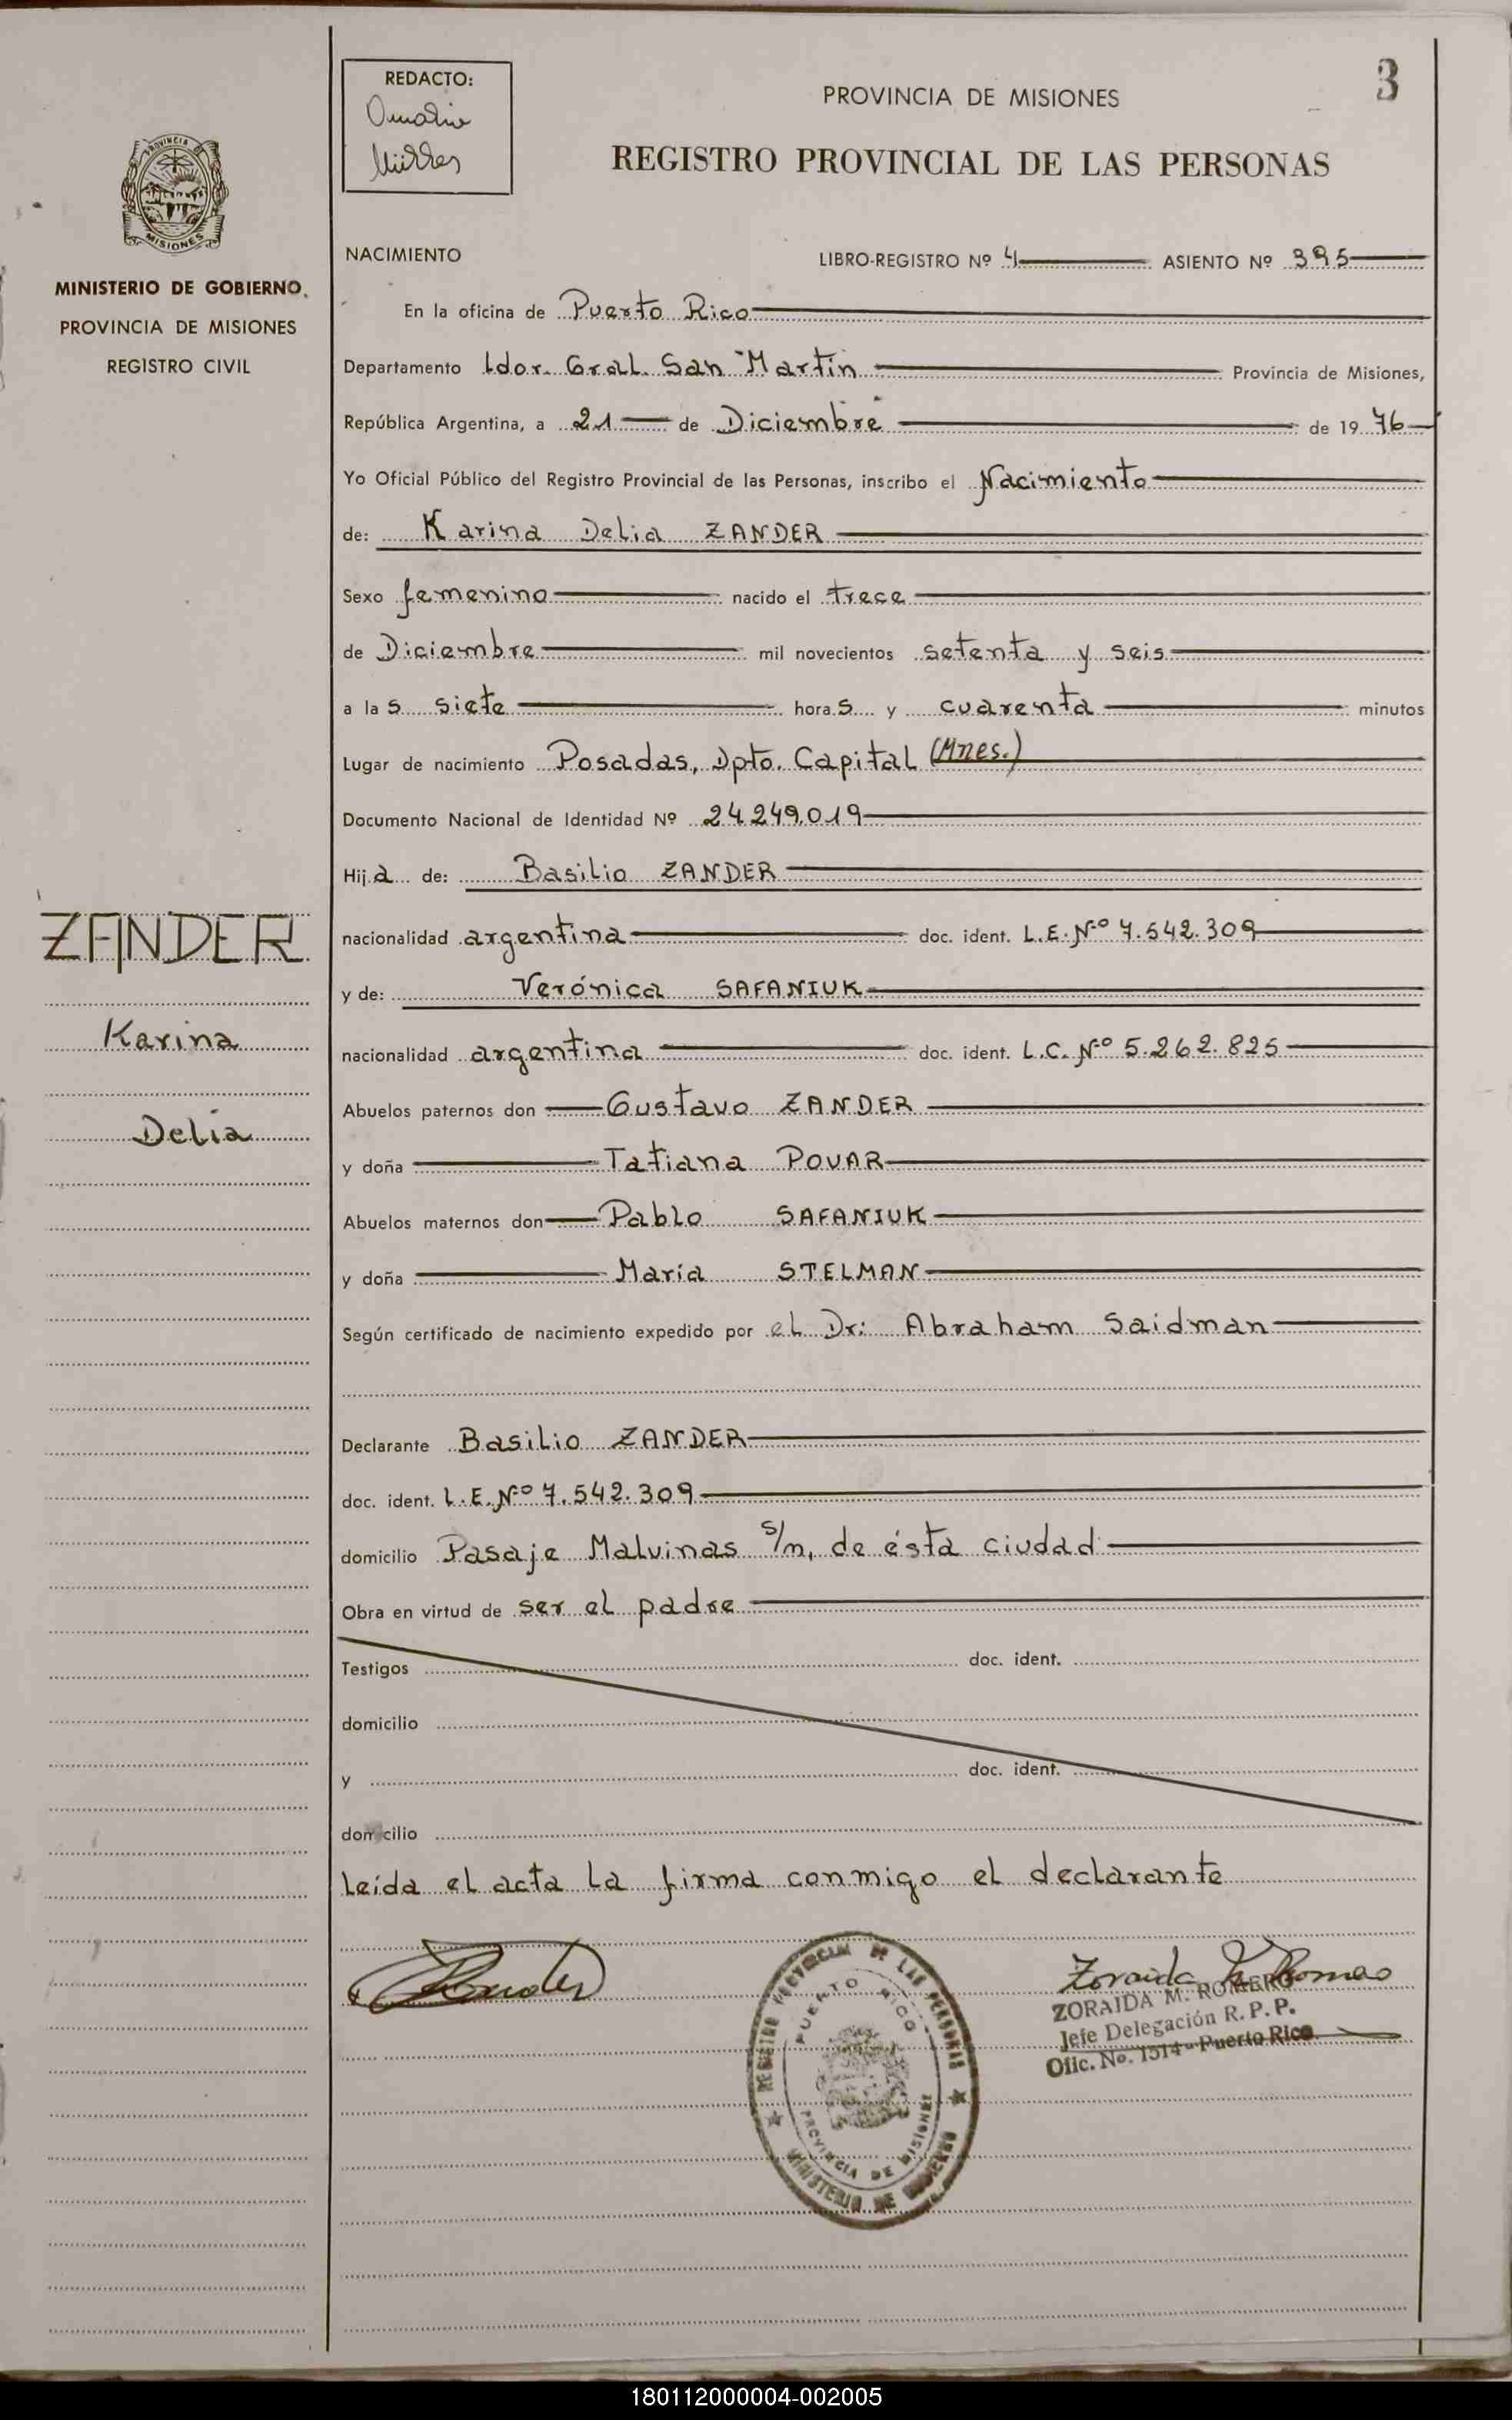 REDACTO:
PROVINCIA DE MISIONES
3
REGISTRO PROVINCIAL DE LAS PERSONAS
PROVINCIA DE
MISIONES
MINISTERIO DE GOBIERNO
PROVINCIA DE MISIONES
REGISTRO CIVIL
NACIMIENTO LIBRO-REGISTRO Nº 4 ASIENTO Nº 395
En la oficina de Puerto Rico
Departamento Ldor. Gral. San Martín Provincia de Misiones,
República Argentina, a 21 de Diciembre de 19 76
Yo Oficial Público del Registro Provincial de las Personas, inscribo el Nacimiento
de: Karina Delia ZANDER
Sexo femenino nacido el trece
de Diciembre mil novecientos setenta y seis
a las siete horas y cuarenta minutos
Lugar de nacimiento Posadas, Dpto. Capital (Mnes.)
Documento Nacional de Identidad Nº 24.249.019
Hija de: Basilio ZANDER
nacionalidad argentina doc. ident. L.E. Nº 7.542.309
y de: Verónica SAFANIUK
nacionalidad argentina doc. ident. L.C. Nº 5.262.825
Abuelos paternos don Gustavo ZANDER
y doña Tatiana POVAR
Abuelos maternos don Pablo SAFANIUK
y doña María STELMAN
Según certificado de nacimiento expedido por el Dr: Abraham Saidman
Declarante Basilio ZANDER
doc. ident. L.E. Nº 7.542.309
domicilio Pasaje Malvinas s/n, de ésta ciudad
Obra en virtud de ser el padre
Testigos doc. ident.
domicilio
y doc. ident.
domicilio
Leída el acta la firma conmigo el declarante
ZANDER
Karina
Delia
REGISTRO PROVINCIAL DE LAS PERSONAS
PUERTO RICO
PROVINCIA DE MISIONES
MINISTERIO DE GOBIERNO
ZORAIDA M. ROMERO
Jefe Delegación R. P. P.
Ofic. No. 1514 - Puerto Rico
180112000004-002005